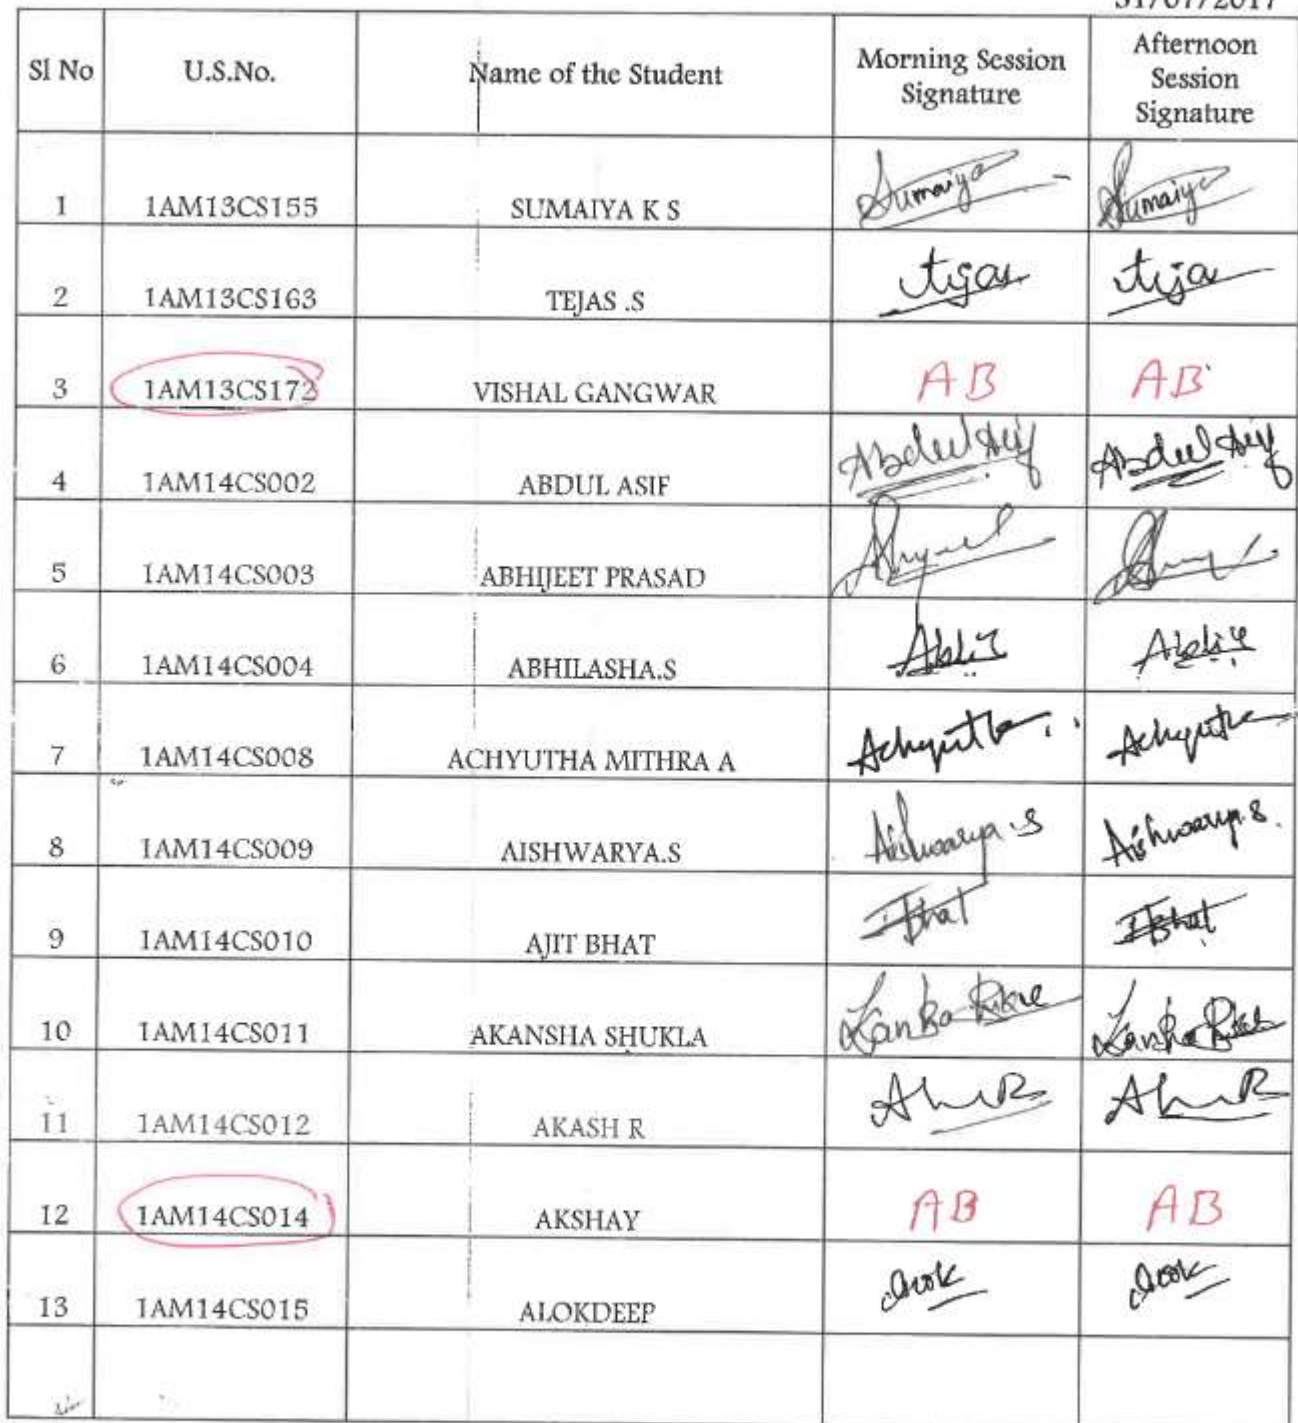 31/07/2017
Sl No U.S.No. Name of the Student Morning Session Signature Afternoon Session Signature
1 1AM13CS155 SUMAIYA K S Sumaiya Sumaiya
2 1AM13CS163 TEJAS .S Tejas Teja
3 1AM13CS172 VISHAL GANGWAR AB AB
4 1AM14CS002 ABDUL ASIF Abdul Asif Abdul Asif
5 1AM14CS003 ABHIJEET PRASAD
6 1AM14CS004 ABHILASHA.S
7 1AM14CS008 ACHYUTHA MITHRA A Achyutha Achyutha
8 1AM14CS009 AISHWARYA.S Aishwarya.S Aishwarya.S
9 1AM14CS010 AJIT BHAT Bhat Bhat
10 1AM14CS011 AKANSHA SHUKLA
11 1AM14CS012 AKASH R
12 1AM14CS014 AKSHAY AB AB
13 1AM14CS015 ALOKDEEP Alok Alok